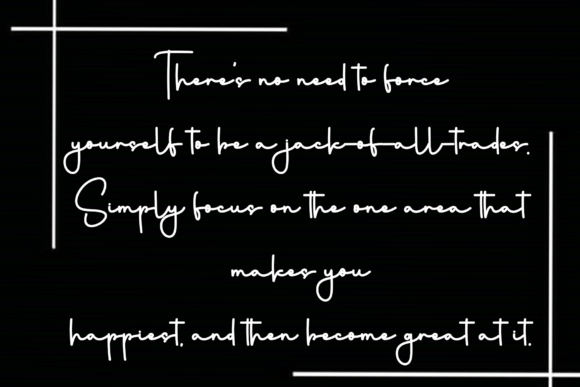 There's no need to force
yourself to be a jack-of-all-trades.
Simply focus on the one area that
makes you
happiest, and then become great at it.